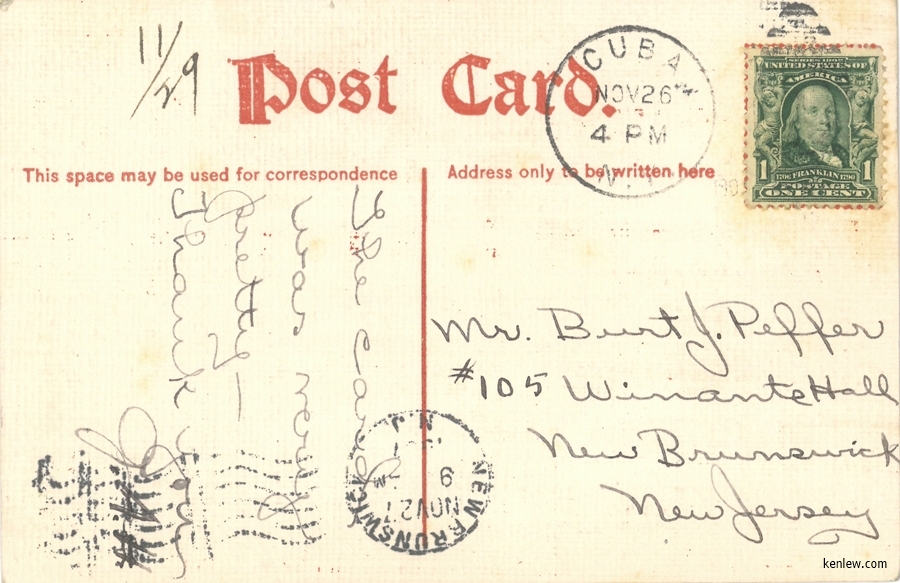 11/29
Post Card.
This space may be used for correspondence
Address only to be written here
CUBA
NOV 26
4 PM
N.Y.
SERIES 1902
UNITED STATES OF
AMERICA
1 1
1706 FRANKLIN 1790
POSTAGE
ONE CENT
The card
was very
pretty—
Thank you
Mr. Burt J. Peffer
#105 Winants Hall
New Brunswick
New Jersey
NEW BRUNSWICK
N.J.
NOV 27
kenlew.com